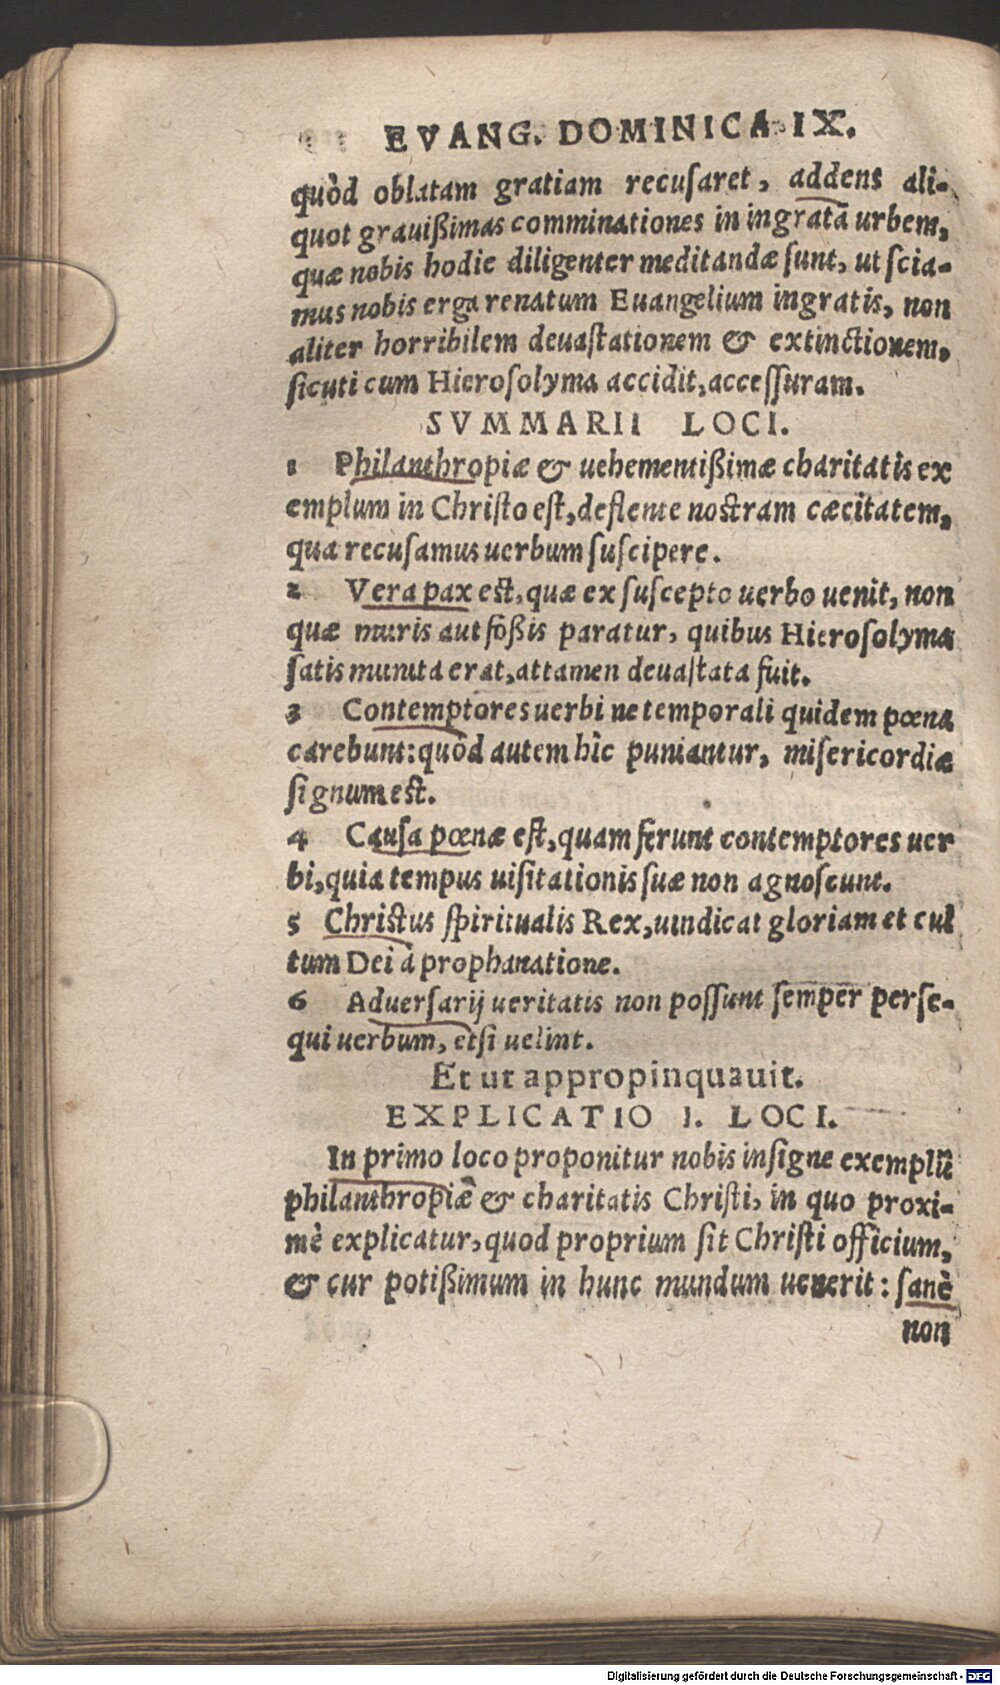 EVANG. DOMINICA IX.
quòd oblatam gratiam recusaret, addens ali-
quot grauißimas comminationes in ingratā urbem,
quæ nobis hodie diligenter meditandæ sunt, ut scia-
mus nobis erga renatum Euangelium ingratis, non
aliter horribilem deuastationem & extinctionem,
sicuti cum Hierosolyma accidit, accessuram.
SVMMARII LOCI.
1 Philanthropiæ & uehementißimæ charitatis ex
emplum in Christo est, deflente nostram cæcitatem,
qua recusamus uerbum suscipere.
2 Vera pax est, quæ ex suscepto uerbo uenit, non
quæ muris aut foßis paratur, quibus Hierosolyma
satis munita erat, attamen deuastata fuit.
3 Contemptores uerbi ne temporali quidem pœna
carebunt: quòd autem hîc puniantur, misericordiæ
signum est.
4 Causa pœnæ est, quam ferunt contemptores uer
bi, quia tempus uisitationis suæ non agnoscunt.
5 Christus spiritualis Rex, uindicat gloriam et cul
tum Dei à prophanatione.
6 Aduersarij ueritatis non possunt semper perse-
qui uerbum, etsi uelint.
Et ut appropinquauit.
EXPLICATIO I. LOCI.
In primo loco proponitur nobis insigne exemplū
philanthropiæ & charitatis Christi, in quo proxi-
mè explicatur, quod proprium sit Christi officium,
& cur potißimum in hunc mundum uenerit: sanè
non
Digitalisierung gefördert durch die Deutsche Forschungsgemeinschaft - DFG